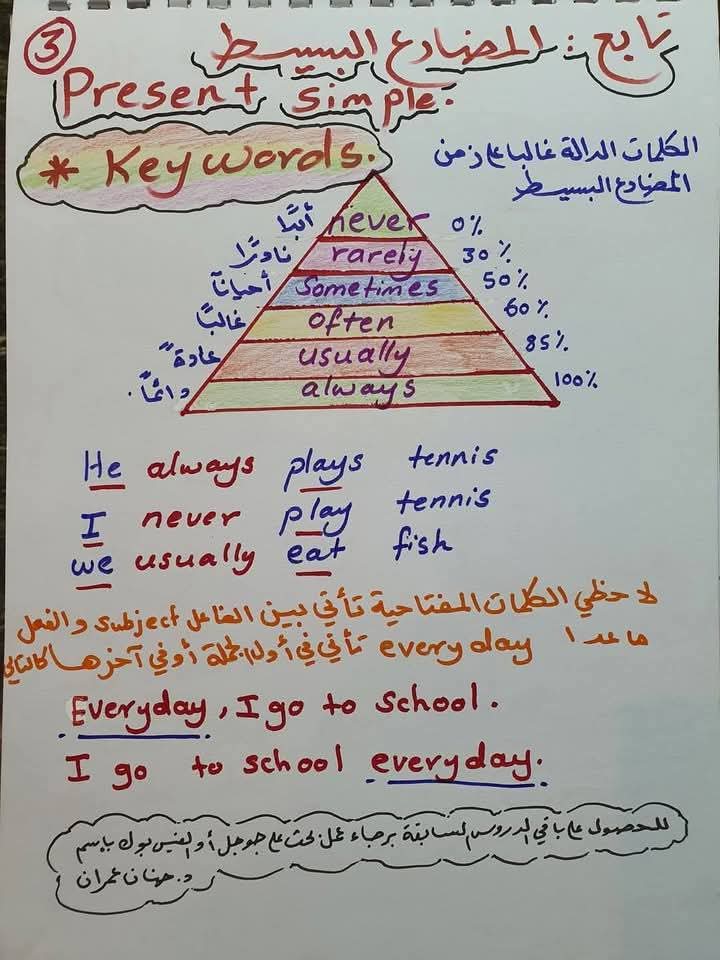 3
تابع : المضارع البسيط
Present simple.
* Keywords.
الكلمات الدالة غالبا على زمن
المضارع البسيط
أبدًا never 0%
نادرًا rarely 30%
أحيانًا Sometimes 50%
غالبًا often 60%
عادةً usually 85%
دائمًا always 100%
He always plays tennis
I never play tennis
we usually eat fish
لاحظي الكلمات المفتاحية تأتي بين الفاعل subject والفعل
ماعدا every day تأتي في أول الجملة أو في آخرها كالتالي
Everyday, I go to school.
I go to school everyday.
للحصول على باقي الدروس السابقة برجاء عمل بحث على جوجل أو الفيس بوك باسم
د. حنان عمران